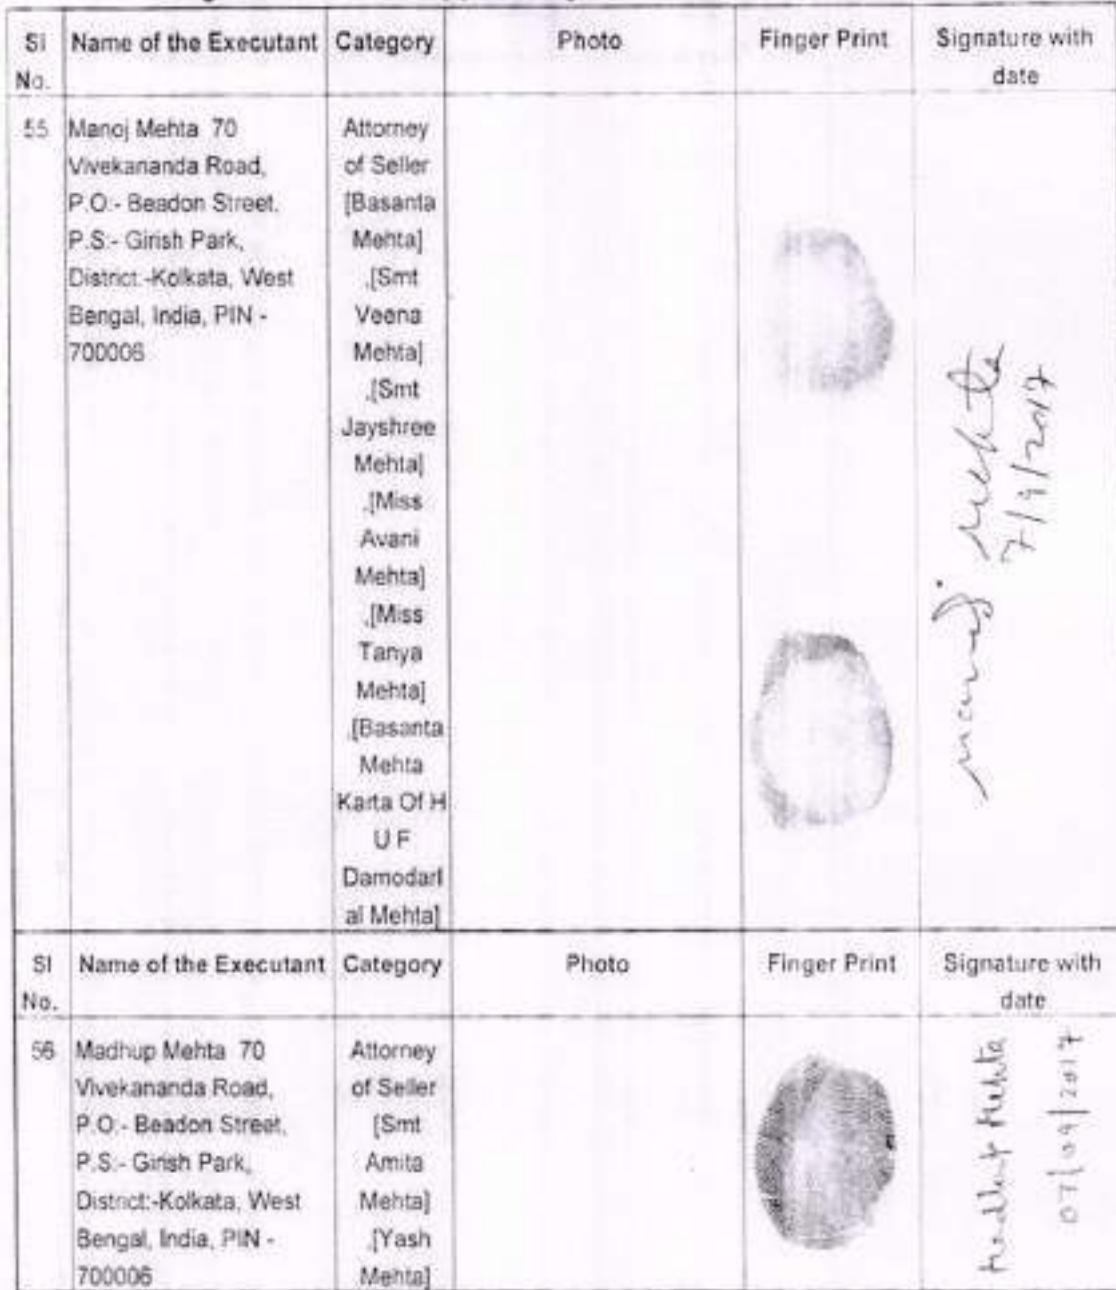 Sl No. Name of the Executant Category Photo Finger Print Signature with date
55 Manoj Mehta 70 Vivekananda Road, P.O:- Beadon Street, P.S:- Girish Park, District:-Kolkata, West Bengal, India, PIN - 700006
Attorney
of Seller
[Basanta
Mehta]
,[Smt
Veena
Mehta]
,[Smt
Jayshree
Mehta]
,[Miss
Avani
Mehta]
,[Miss
Tanya
Mehta]
,[Basanta
Mehta
Karta Of H
U F
Damodarl
al Mehta]
Manoj Mehta
7/9/2017
Sl No. Name of the Executant Category Photo Finger Print Signature with date
56 Madhup Mehta 70 Vivekananda Road, P.O:- Beadon Street, P.S:- Girish Park, District:-Kolkata, West Bengal, India, PIN - 700006
Attorney
of Seller
[Smt
Amita
Mehta]
,[Yash
Mehta]
Madhup Mehta
07/09/2017